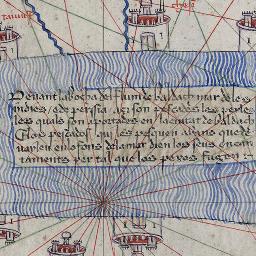 tauris
Denant la bocha del flum de baldach mar de les
indies e de perssia açi son pescades les perles
les quals son aportades en la ciutat de baldach
E los pescados qui les pesquen abans que de
vayllen en lo fons de la mar dien los seus encan
taments per tal que los pexos fugen